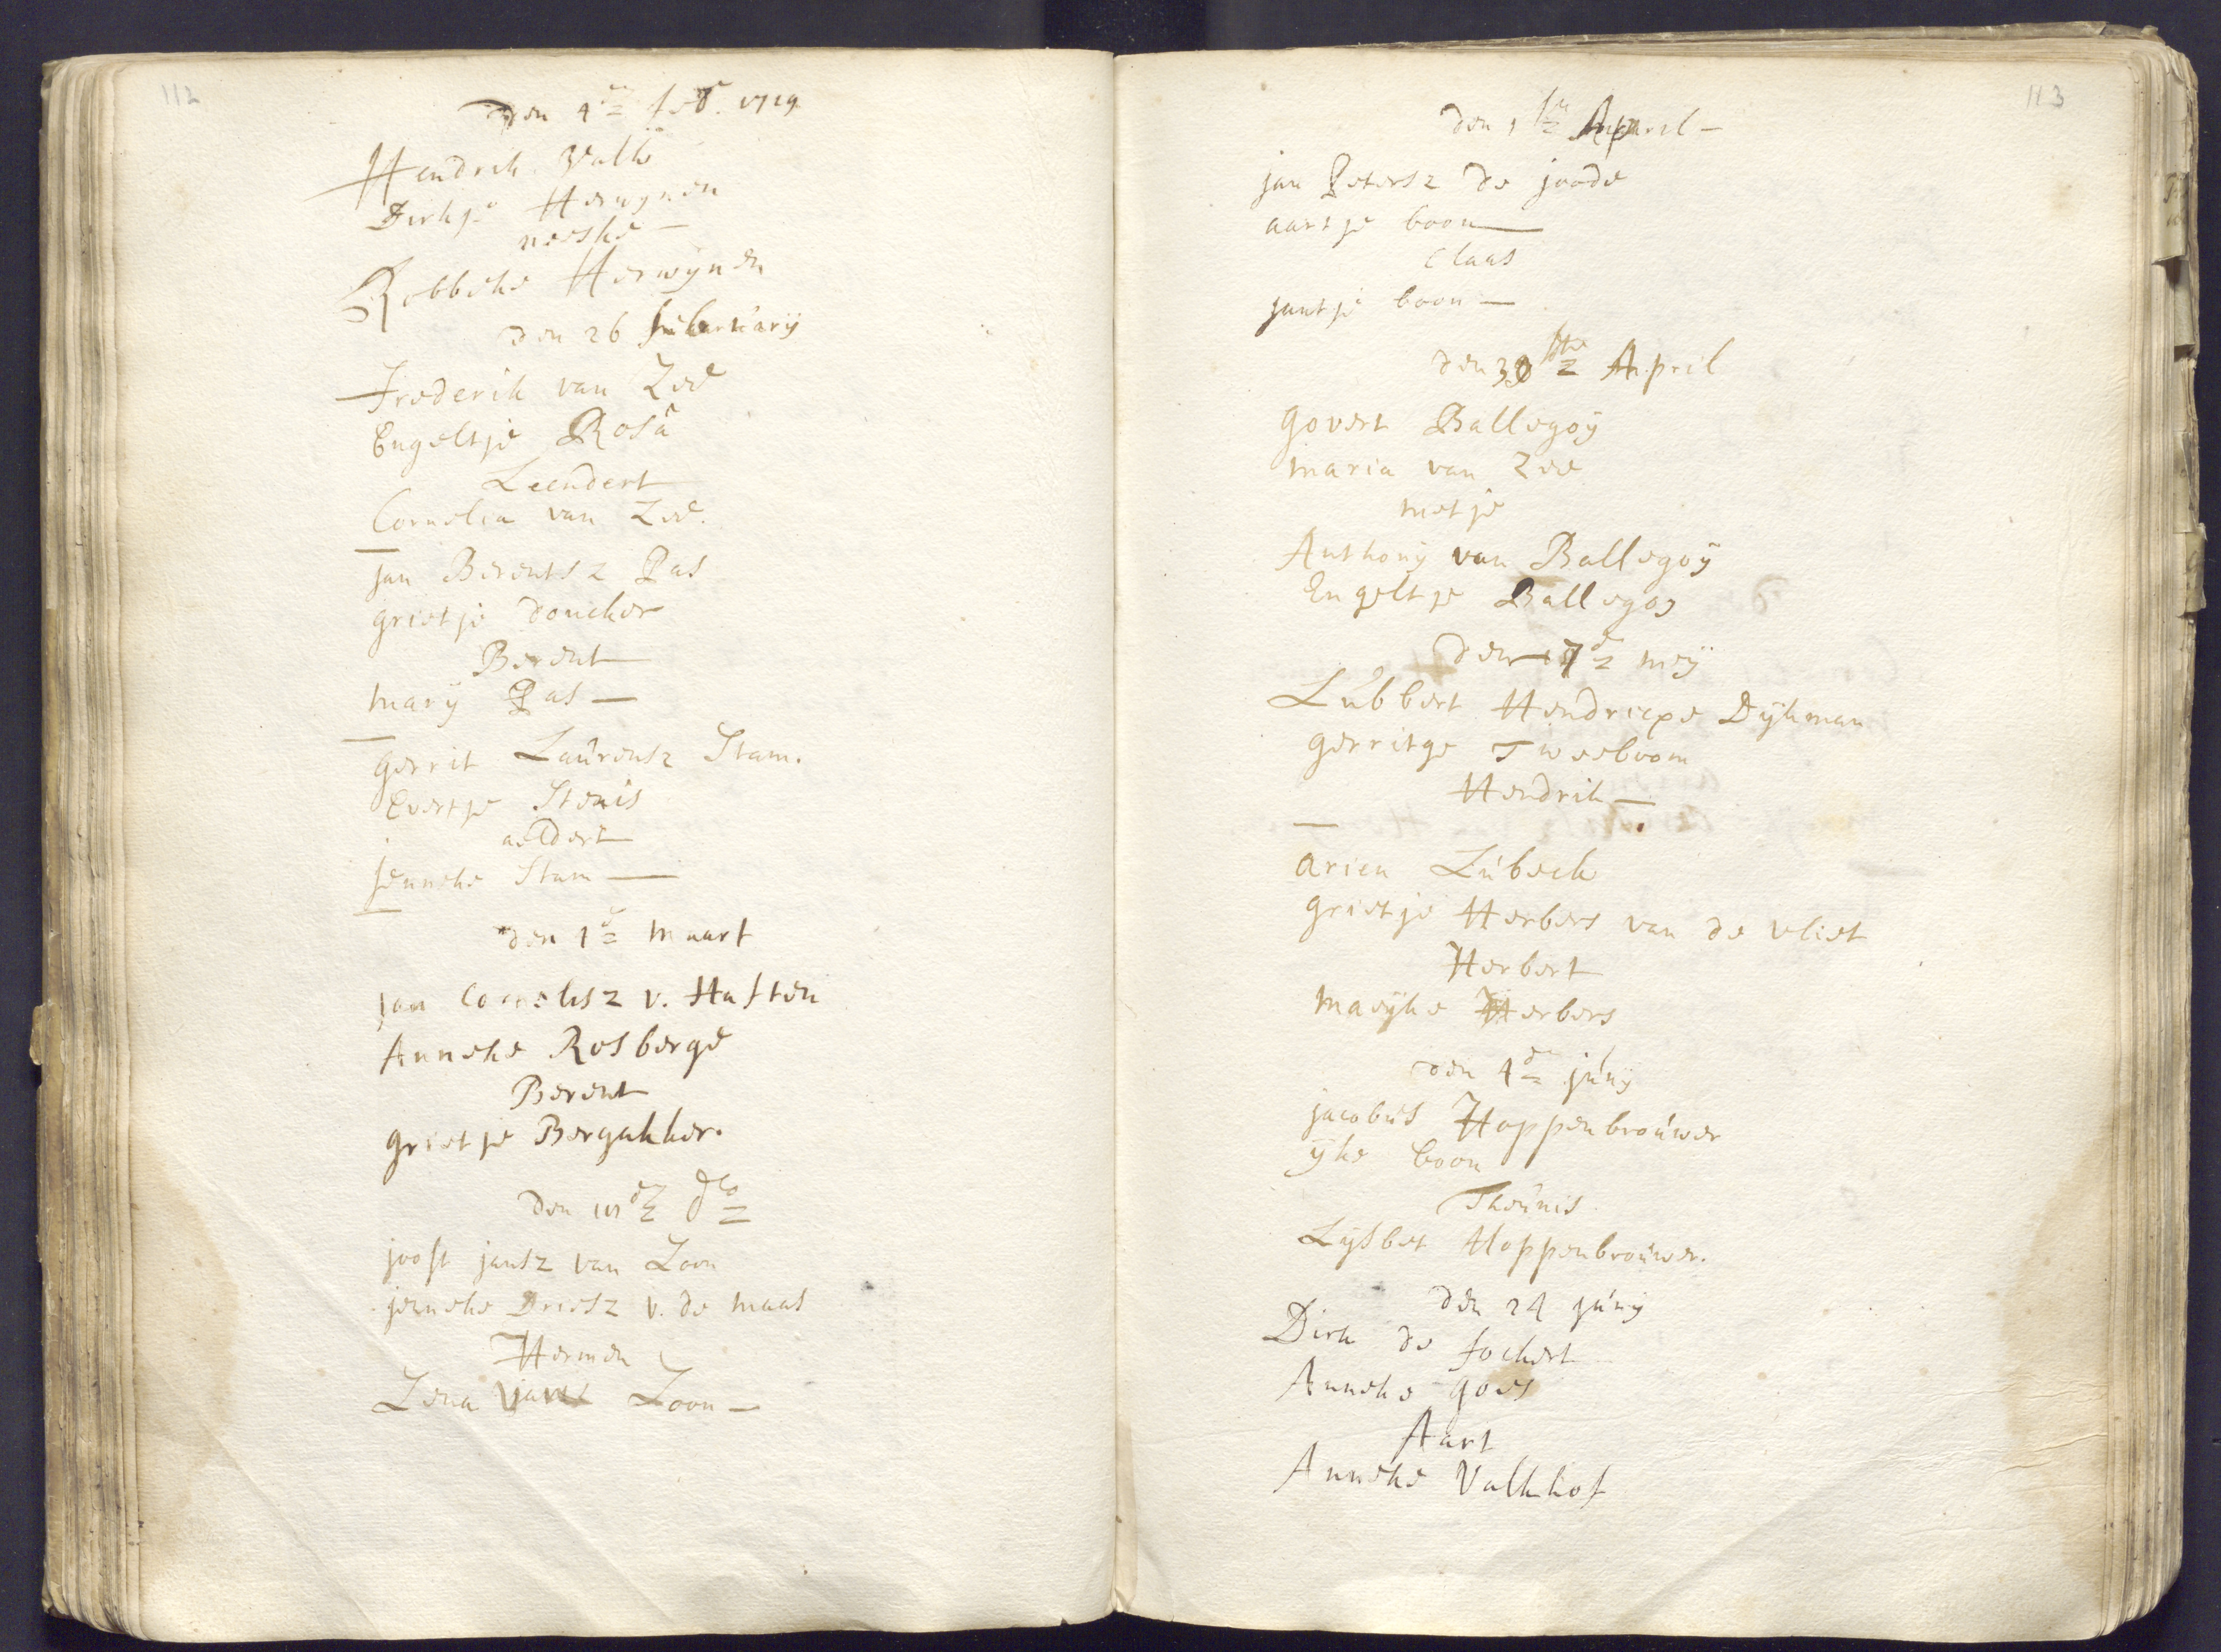 112
den 4de feb. 1719
Hendrik Valk
Dirkje Herwynen
neeske —
Robbeke Herwÿnen
den 26 februarÿ
Frederik van Zee
Engeltje Rosa
Leendert
Cornelia van Zee.
jan Berentsz Pas
grietje doncker
Berent
Marÿ Pas —
gerrit Laurensz Stam.
Evertje Stenis
aeldert
jenneke Stam —
den 1e Maart
jan Cornelisz v. Haften
Anneke Rosberge
Berent
grietje Bergakker.
den de do
joost jansz van Loon
jenneke Driesz v. de Maas
Hermen
Lena Loon —
113
den 1ste April —
jan Petersz de joode
aartje boon —
Claas
jantje boon —
den 30ste April
Govert Ballegoÿ
Maria van Zee
Metje
Anthonÿ van Ballegoÿ
Engeltje Ballegoj
den 17de meÿ
Lubbert Hendricxe Dÿkman
gerritge Tweeboom
Hendrik —
Arien Lubeck
grietje Herbers van de vliet
Herbert
Maeÿke Herbers
den 4de junÿ
jacobus Hoppenbrouwer
ÿke boon
Theunis
Lÿsbet Hoppenbrouwer.
den 24 junÿ
Dirk de fockert
Anneke goes
Aart
Anneke Valkhof